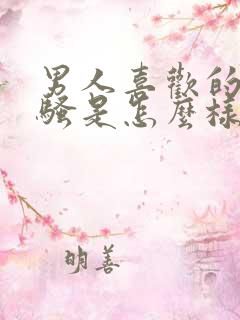 男人喜歡的
騷是怎麼樣
明善